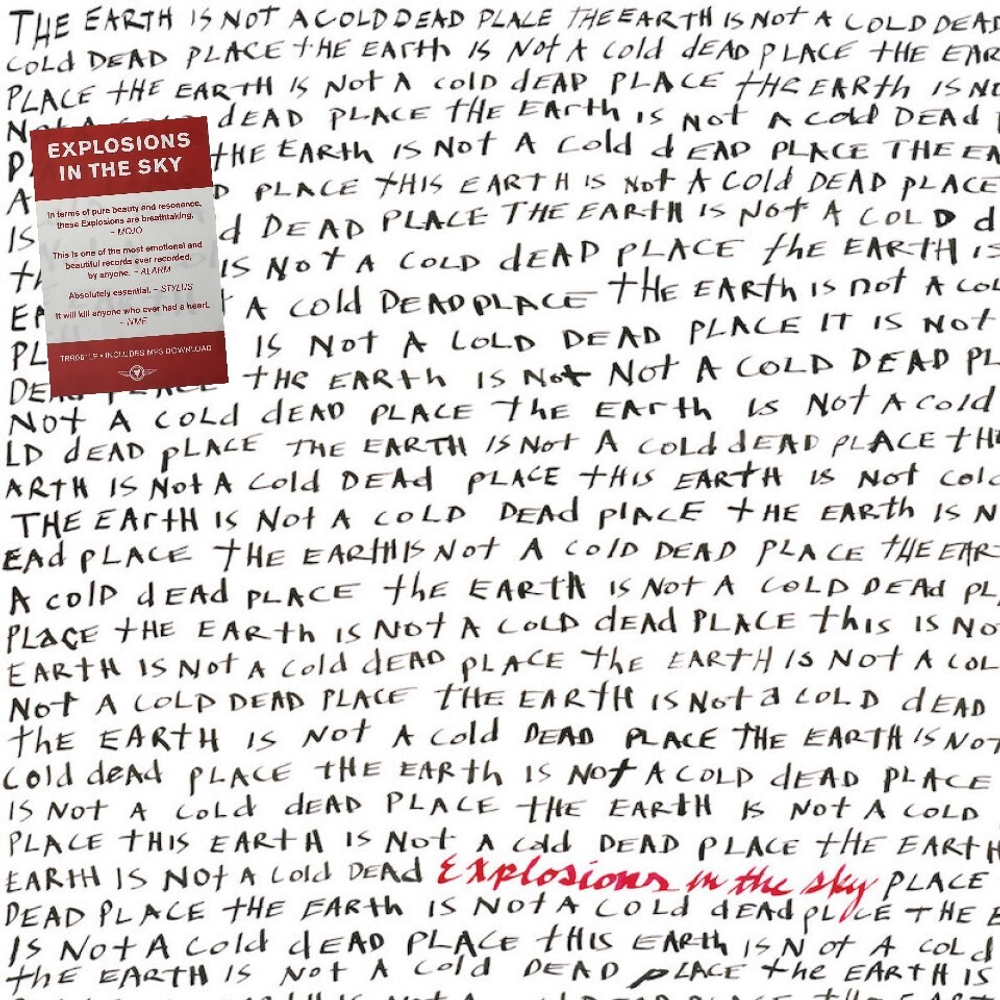 THE EARTH IS NOT A COLD DEAD PLACE THE EARTH IS NOT A COLD DEAD
COLD DEAD PLACE THE EARTH IS NOT A COLD DEAD PLACE THE EAR
PLACE THE EARTH IS NOT A COLD DEAD PLACE THE EARTH IS NO
dEAD PLACE THE EARth IS Not A COLD DEAd
THE EARth IS Not A Cold dEAD PLACE THE EA
PLACE THIS EARTH IS Not A COld DEAD PLACE
IS d DEAD PLACE THE EARth IS NOT A COLD d
IS NOT A COLD dEAD PLACE the EARTH IS
EA A COld DEAD PLACE THE EARth IS not A COL
PL IS NOT A COLD DEAD PLACE IT IS Not
DEAD PLACE tHE EARth IS Not Not A COLD DEAD PL
EXPLOSIONS
IN THE SKY
In terms of pure beauty and resonance,
these Explosions are breathtaking.
– MOJO
This is one of the most emotional and
beautiful records ever recorded,
by anyone. – ALARM
Absolutely essential. – STYLUS
It will kill anyone who ever had a heart.
– NME
• INCLUDES MP3 DOWNLOAD
NOt A COLd dEAD PLACE the EARth IS Not A Cold
LD dEAD pLACE THE EARTH IS Not A COLd dEAD pLACE tHE
ARTH IS Not A Cold DEAd PLACE tHIS EARTH IS Not cold
THE EARtH IS Not A COLD DEAd plACE tHE EARth IS N
EAd pLACE THE EARtH IS Not A COlD DEAD PLACE tHE EAR
A COlD dEAd pLACE the EARTH IS NOT A COLD DEAd pL
PLACE tHE EARth IS Not A COLD dEAd PLACE this IS No
EARTH IS NOt A Cold dEAD pLACE the EARTH IS NOT A COL
Not A COLD DEAD PLACE THE EARtH IS Not a COLD dEAD
thE EARtH IS Not A Cold DEAD PLACE THE EARTH IS NOT
COld dEAd pLACE tHE EARth IS Not A COLD dEAD PLACE
IS Not A Cold dEAD PLACE tHE EARtH IS NOt A COLD
PLACE THIS EARtH IS Not A COld DEAD PLACE tHE EARtH
EARtH IS Not A COld DEAD Explosions in the sky PLACE
DEAD PLACE tHE EARth IS NOt A COLd dEAd pLACE THE E
IS Not A COld dEAD PLACE THIS EARth IS Not A COLd
the EARTH IS Not A Cold DEAD pLACE the EARTH IS